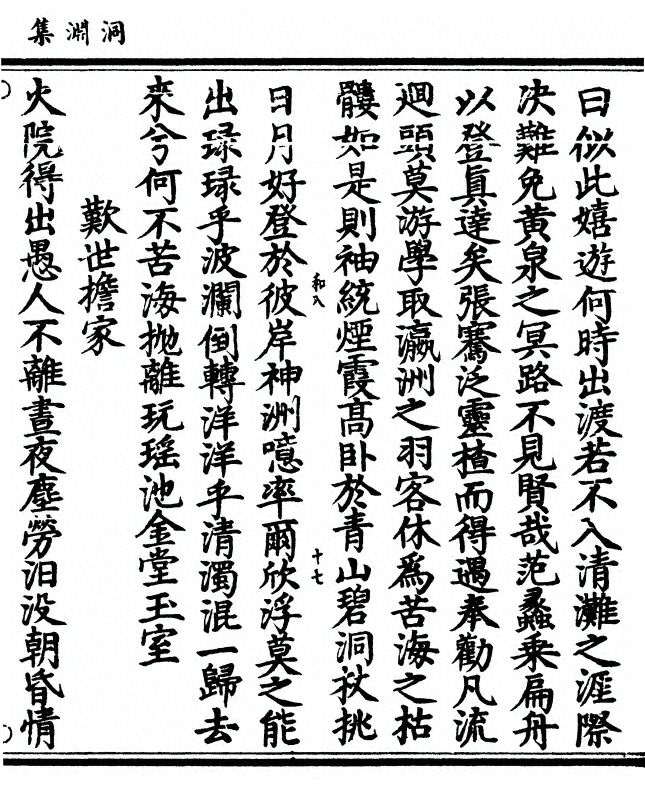 洞淵集
曰似此嬉遊何時出渡若不入清灘之涯際
决難免黄泉之冥路不見賢哉范蠡乘扁舟
以登眞達矣張騫泛靈楂而得遇奉勸凡流
迴頭莫游學取瀛洲之羽客休爲苦海之枯
髏如是則袖統煙霞高卧於青山碧洞杖挑
日月好登於彼岸神洲噫率爾欣浮莫之能
和入
十七
出琭琭乎波瀾倒轉洋洋乎清濁混一歸去
來兮何不苦海抛離玩瑶池金堂玉室
歎世擔家
火院得出愚人不離晝夜塵勞汩没朝昏情